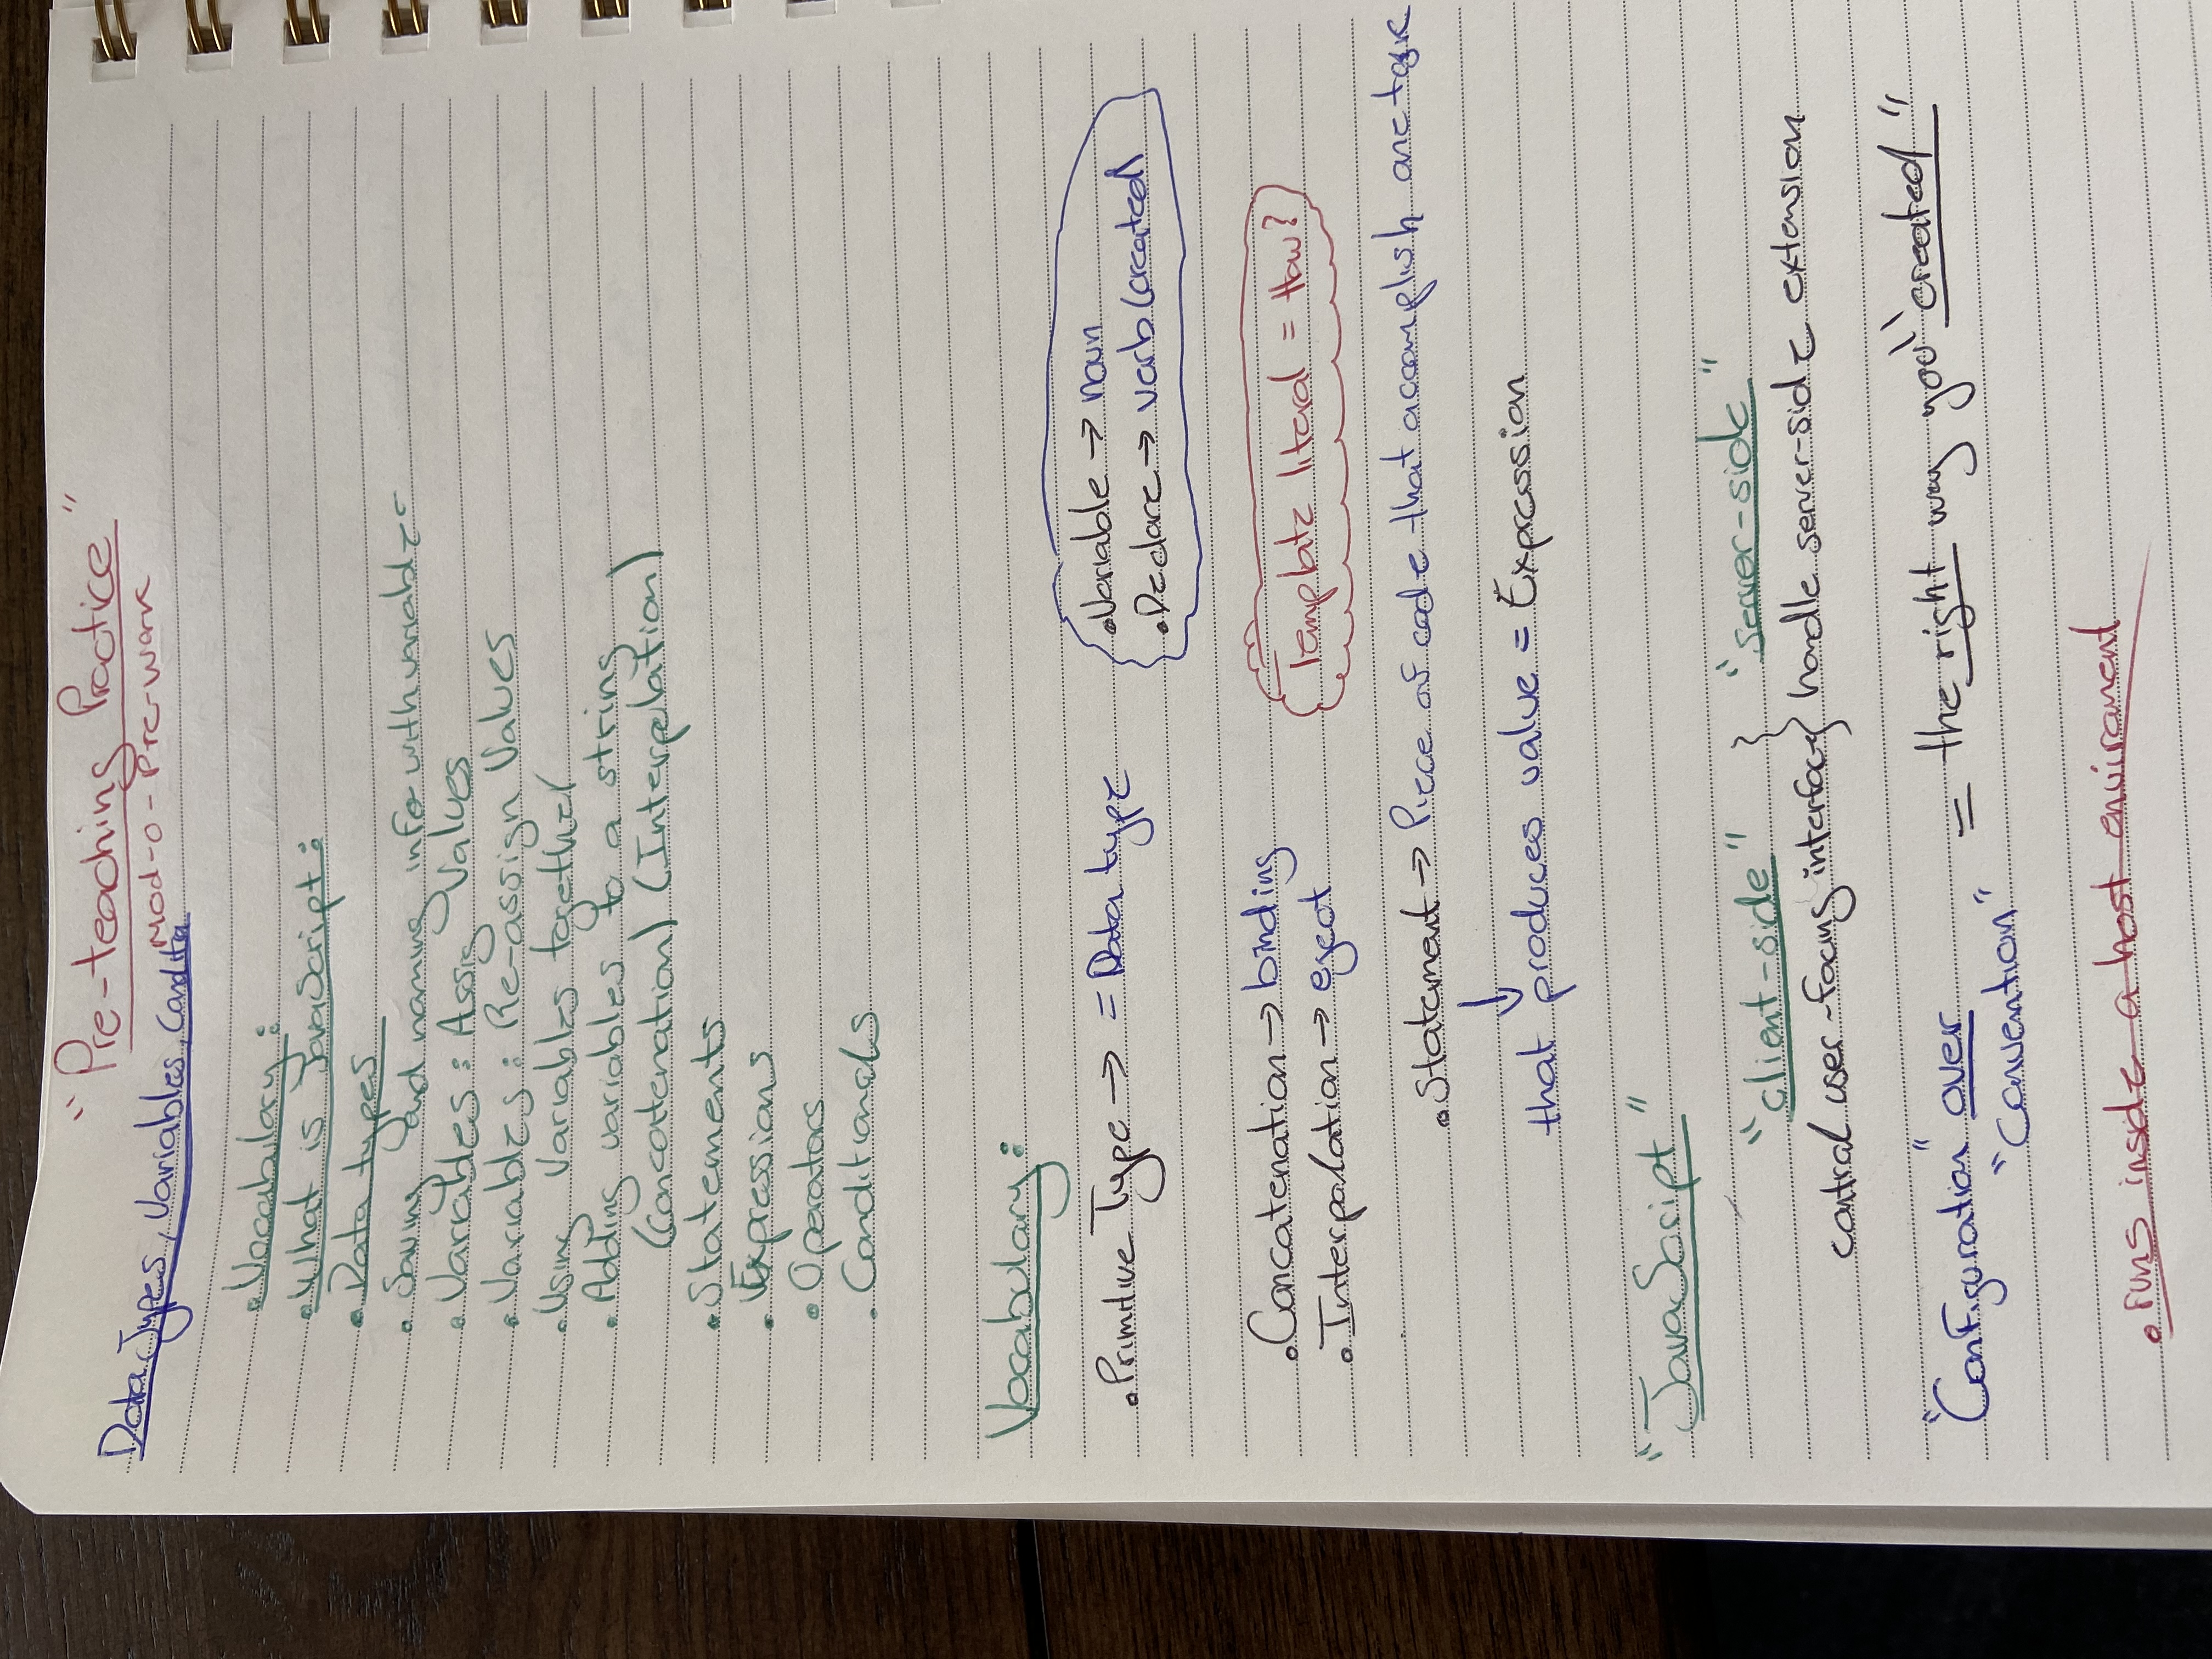 "Pre-teaching Practice"
Mod-0-Pre-work
Data Types, Variables, Conditn
• Vocabulary:
• What is JavaScript:
• Data types
• Saving and naming info with variable-
• Variables: Assig Values
• Variables: Re-assign Values
• Using variables together
• Adding variables to a string
(Concatenation) (Interpelation)
• Statements
• Expressions
• Operators
• Conditionals
Vocabulary:
• Primitive Type → = Data type
• Variable → noun
• Declare → verb (created
• Concatenation → binding
• Interpolation → eject
Template literal = How?
• Statement → Piece of code that accomplish one task
that produces value = Expression
"JavaScript"
"client-side" } "server-side"
control user-facing interface} handle server-side extension
"Configuration" over = the right way you "created"
"Convention"
• runs inside a host enviroment